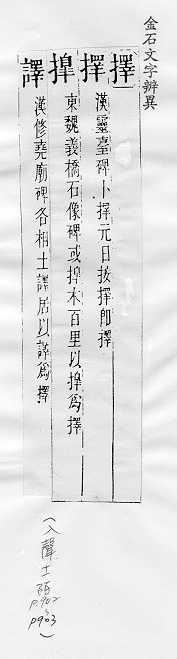 金石文字辨異
擇
擇 漢靈臺碑卜擇元日按擇即擇
揘 東魏義橋石像碑或揘木百里以揘爲擇
譯 漢修堯廟碑各相土譯居以譯爲擇
(入聲十一陌 p.902 p903)